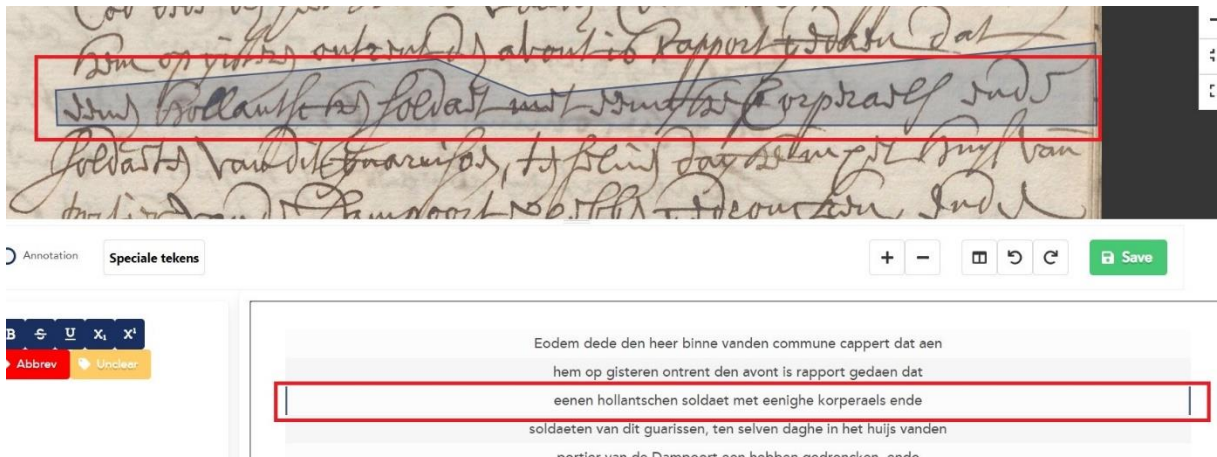 hem op gisteren ontrent den avont is Rapport gedaen dat
eenen hollantschen soldaet met eenighe Corperaels ende
soldaeten van dit guarnison, ten selven daghe in het huys van
portier van de Dampoort hebben gedroncken, ende
Annotation
Speciale tekens
Save
B S U X₁ X¹
Abbrev
Unclear
Eodem dede den heer binne vanden commune cappert dat aen
hem op gisteren ontrent den avont is rapport gedaen dat
eenen hollantschen soldaet met eenighe korperaels ende
soldaeten van dit guarissen, ten selven daghe in het huijs vanden
portier van de Dampoort een hebben gedroncken, ende